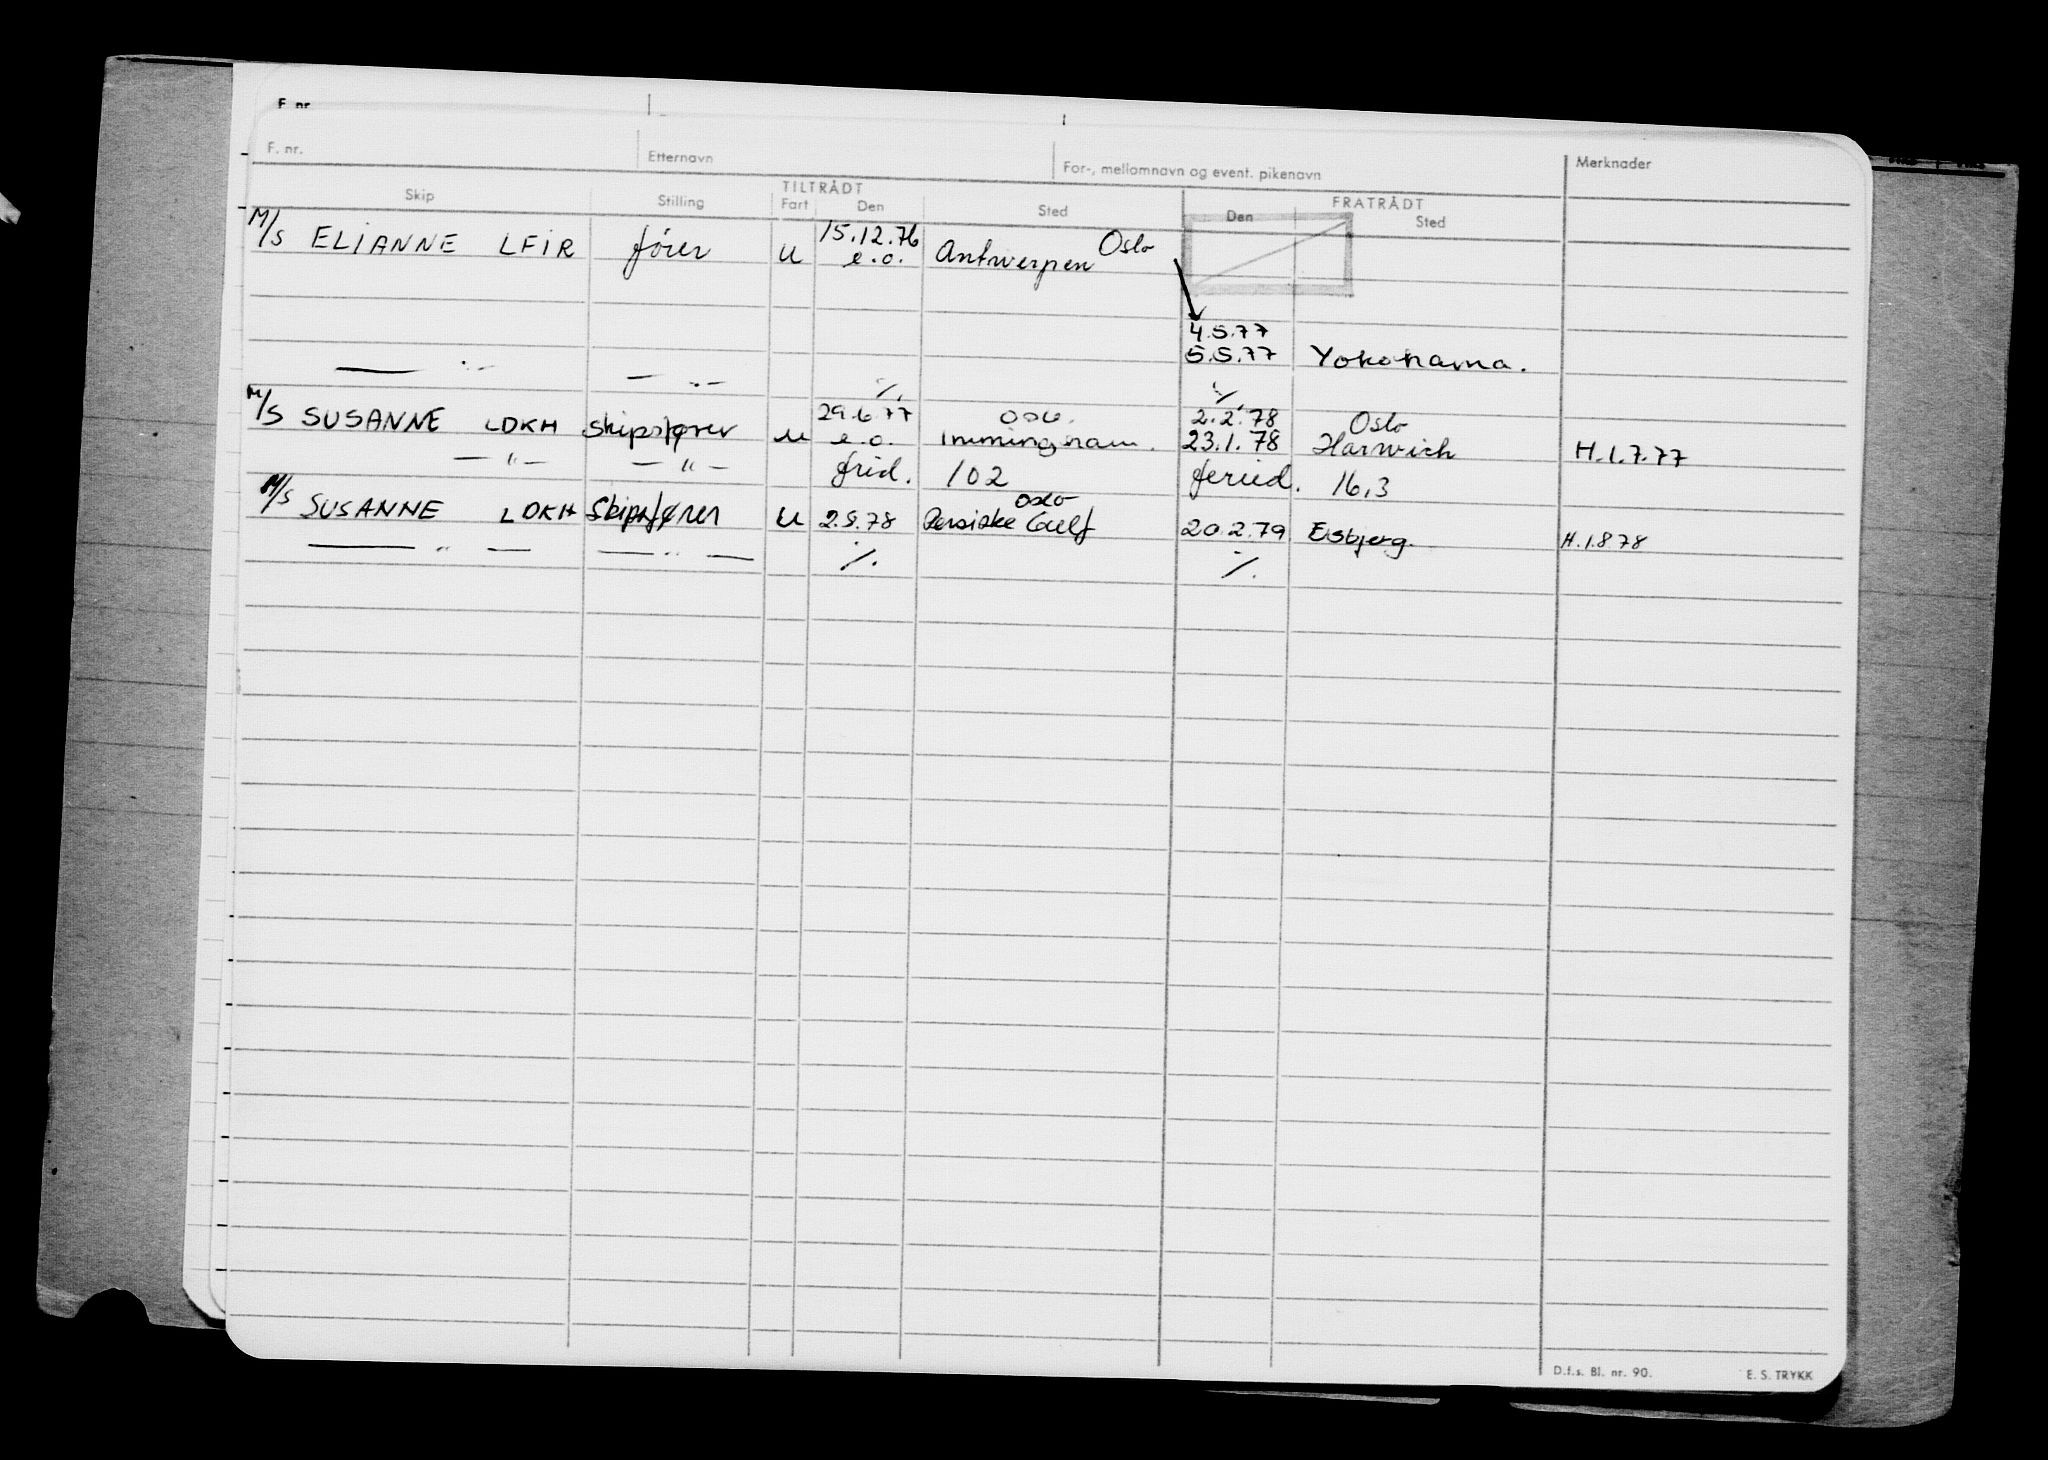 F. nr.
F. nr. Etternavn For-, mellomnavn og event. pikenavn Merknader
Skip Stilling TILTRÅDT Fart Den Sted FRATRÅDT Den Sted
M/S ELIANNE LFIR fører U 15.12.76 e.o. Antwerpen Oslo
4.5.77
5.5.77 Yokohama.
— " — — " — ·/. ·/.
M/S SUSANNE LDKH skipsfører u 29.6.77 Oslo. 2.2.78 Oslo
e.o. Immingham. 23.1.78 Harwich H.1.7.77
— " — — " — frid. 102 feried. 16,3
M/S SUSANNE LDKH Skipsfører U 2.9.78 Oslo Persiske Gulf 20.2.79 Esbjerg. H.1.8.78
— " — — " — ·/. ·/.
D.f.s. Bl. nr. 90. E. S. TRYKK